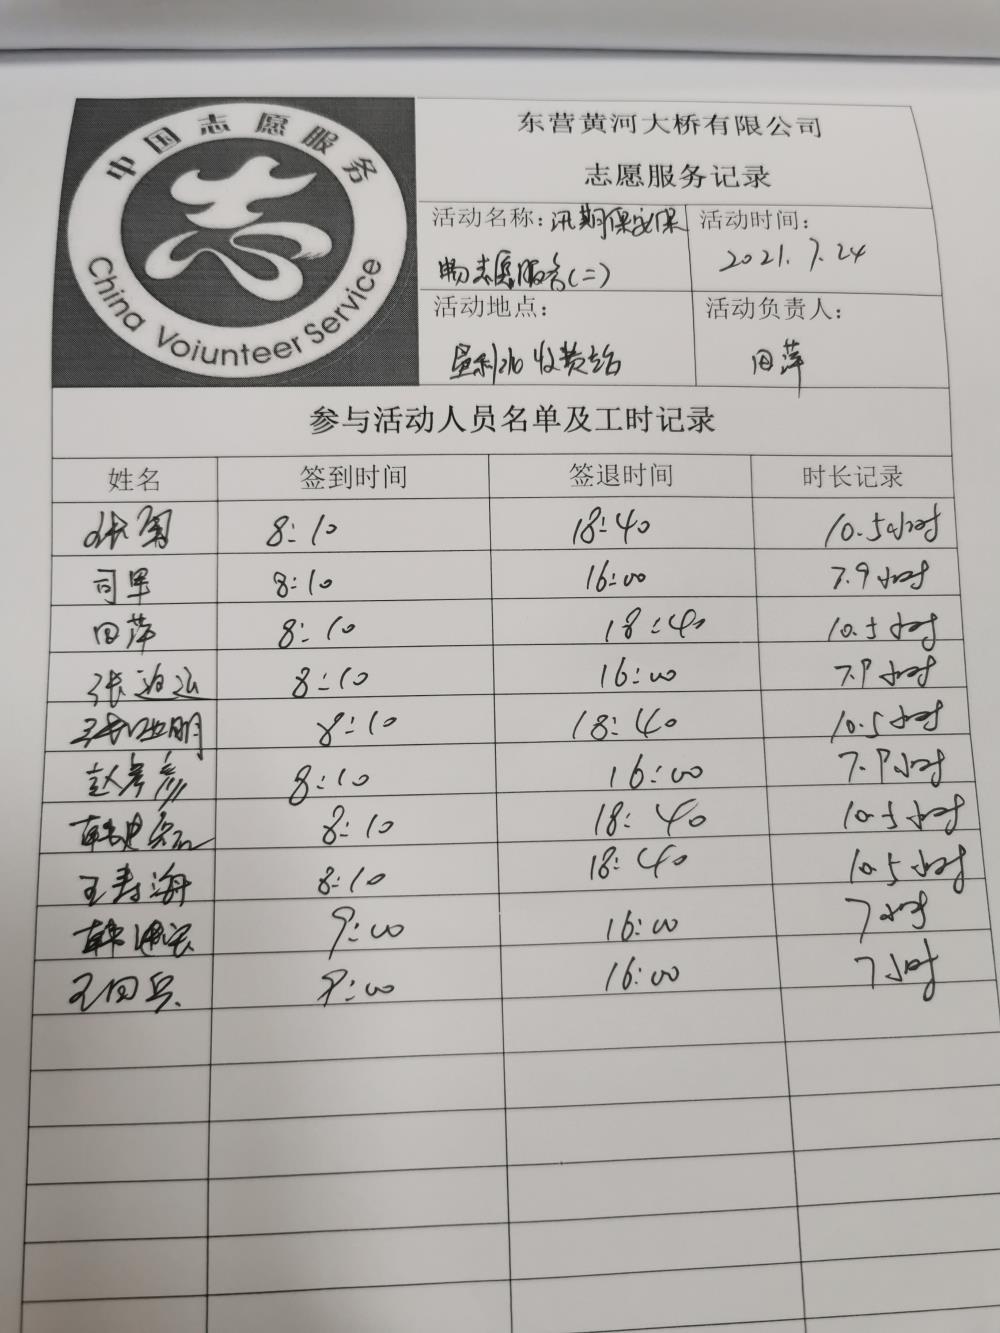 中国志愿服务
China Voiunteer Service
东营黄河大桥有限公司
志愿服务记录
活动名称：汛期保安保
畅志愿服务(二)
活动时间：
2021.7.24
活动地点：
垦利北收费站
活动负责人：
田萍
参与活动人员名单及工时记录
姓名 签到时间 签退时间 时长记录
8:10 18:40 10.5小时
司军 8:10 16:00 7.9小时
田萍 8:10 18:40 10.5小时
张 8:10 16:00 7.9小时
8:10 18:40 10.5小时
赵 彦 8:10 16:00 7.9小时
韩建 8:10 18:40 10.5小时
王寿海 8:10 18:40 10.5小时
韩 9:00 16:00 7小时
王 兵 9:00 16:00 7小时